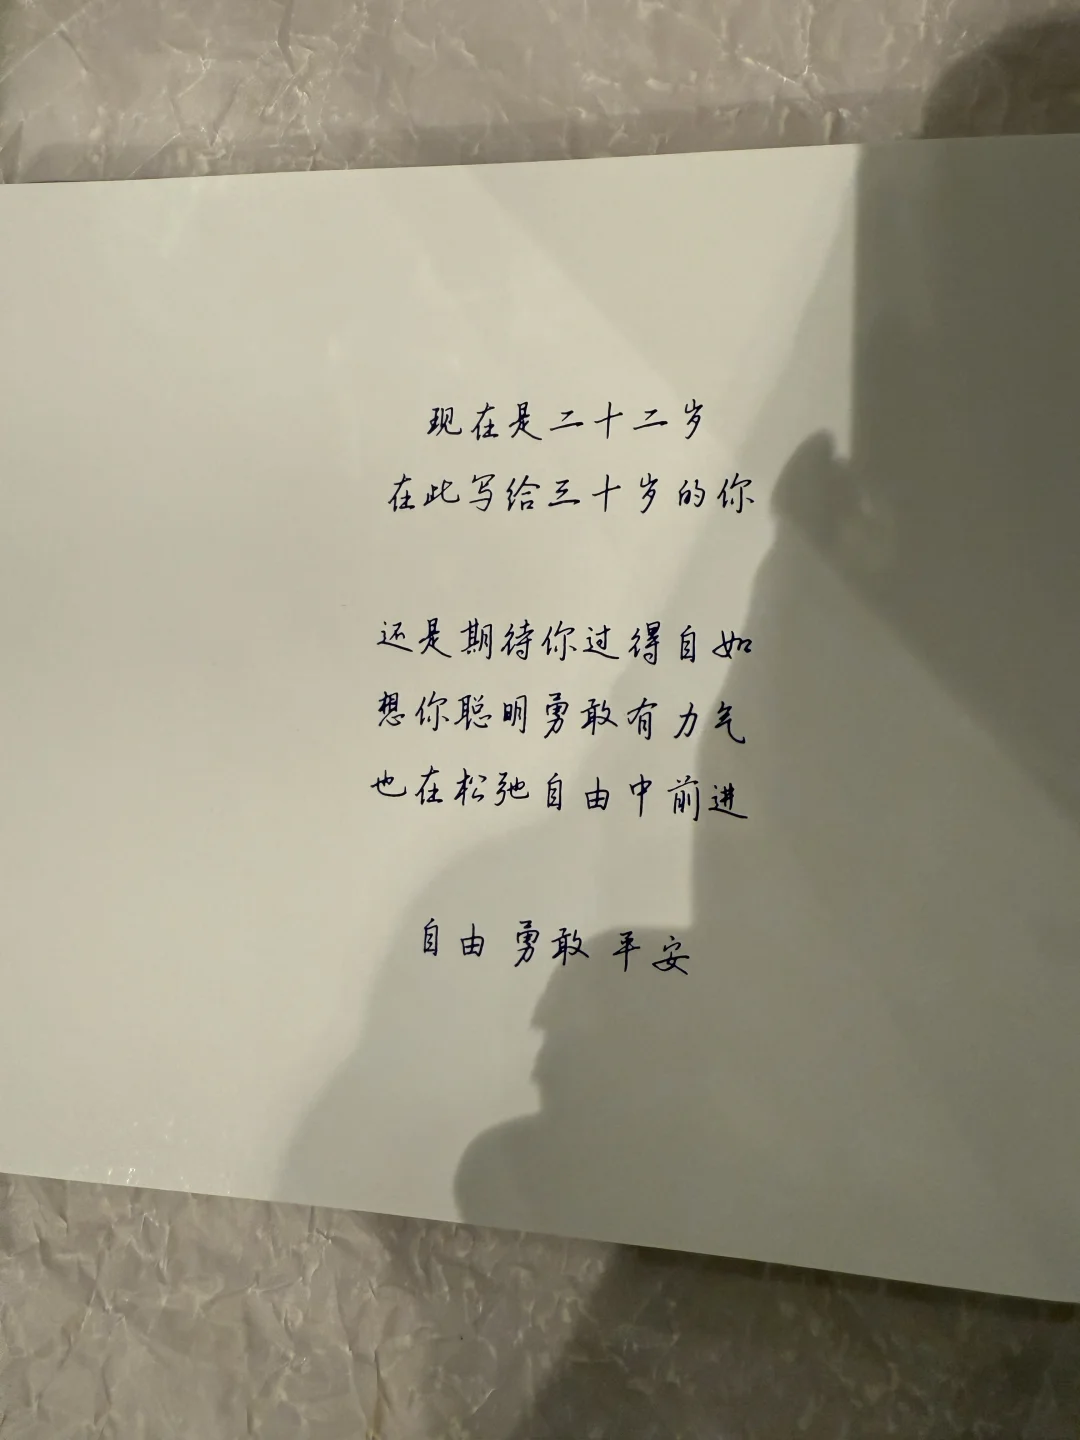 现在是二十二岁
在此写给三十岁的你
还是期待你过得自如
想你聪明勇敢有力气
也在松弛自由中前进
自由 勇敢 平安